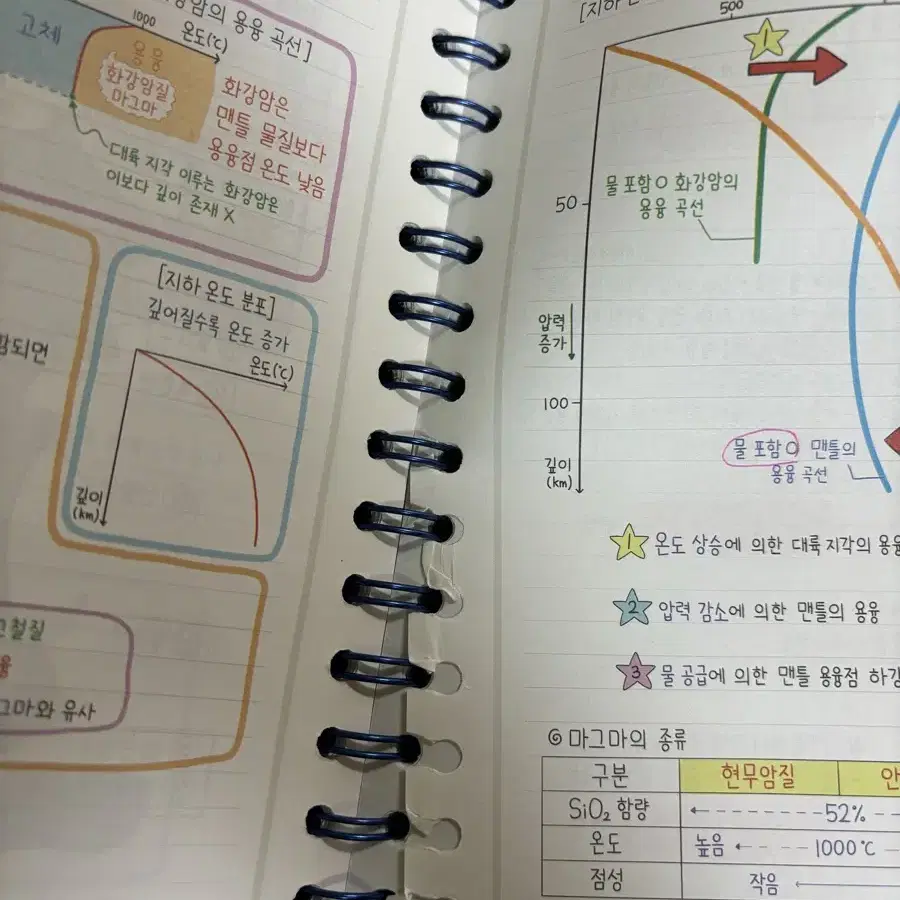 암의 용융 곡선]
1000
온도(℃)
고체
용융
화강암질
마그마
화강암은
맨틀 물질보다
용융점 온도 낮음
대륙 지각 이루는 화강암은
이보다 깊이 존재 X
[지하 온도 분포]
깊어질수록 온도 증가
온도(℃)
깊이
(km)
되면
철질
그마와 유사
[지하 온
500
1
물 포함 O 화강암의
용융 곡선
50
압력
증가
100
깊이
(km)
물 포함 O 맨틀의
용융 곡선
1 온도 상승에 의한 대륙 지각의 용융
2 압력 감소에 의한 맨틀의 용융
3 물 공급에 의한 맨틀 용융점 하강
⑥ 마그마의 종류
구분 현무암질 안
SiO₂ 함량 52%
온도 높음 1000℃
점성 작음